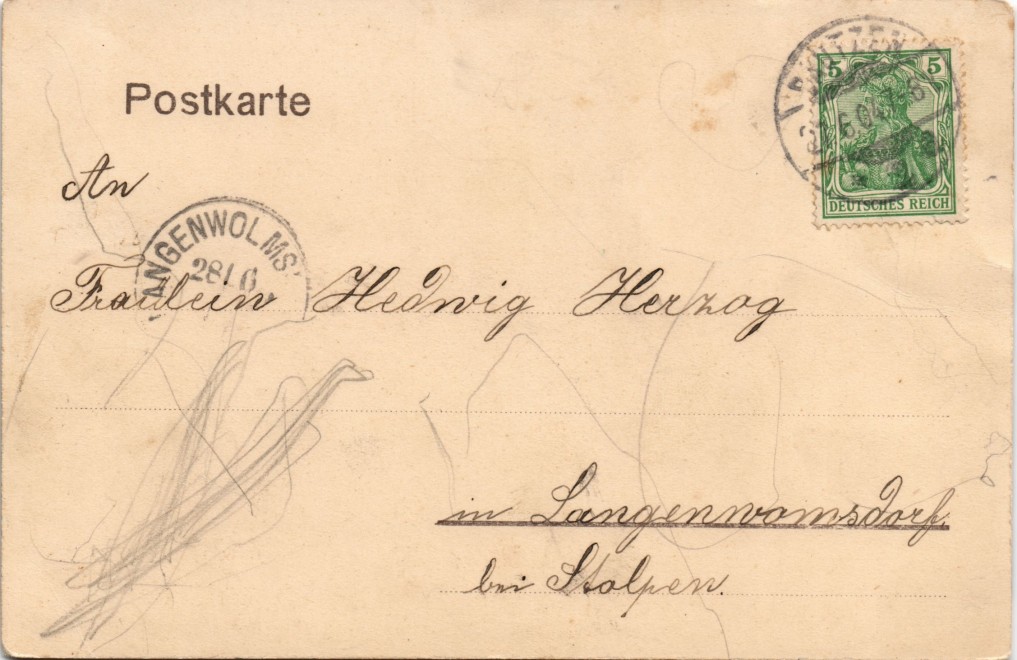 Postkarte
5 5
DEUTSCHES REICH
An
LANGENWOLMS
28/ 6
Fräulein Hedwig Herzog
in Langenwomsdorf,
bei Stolpen.